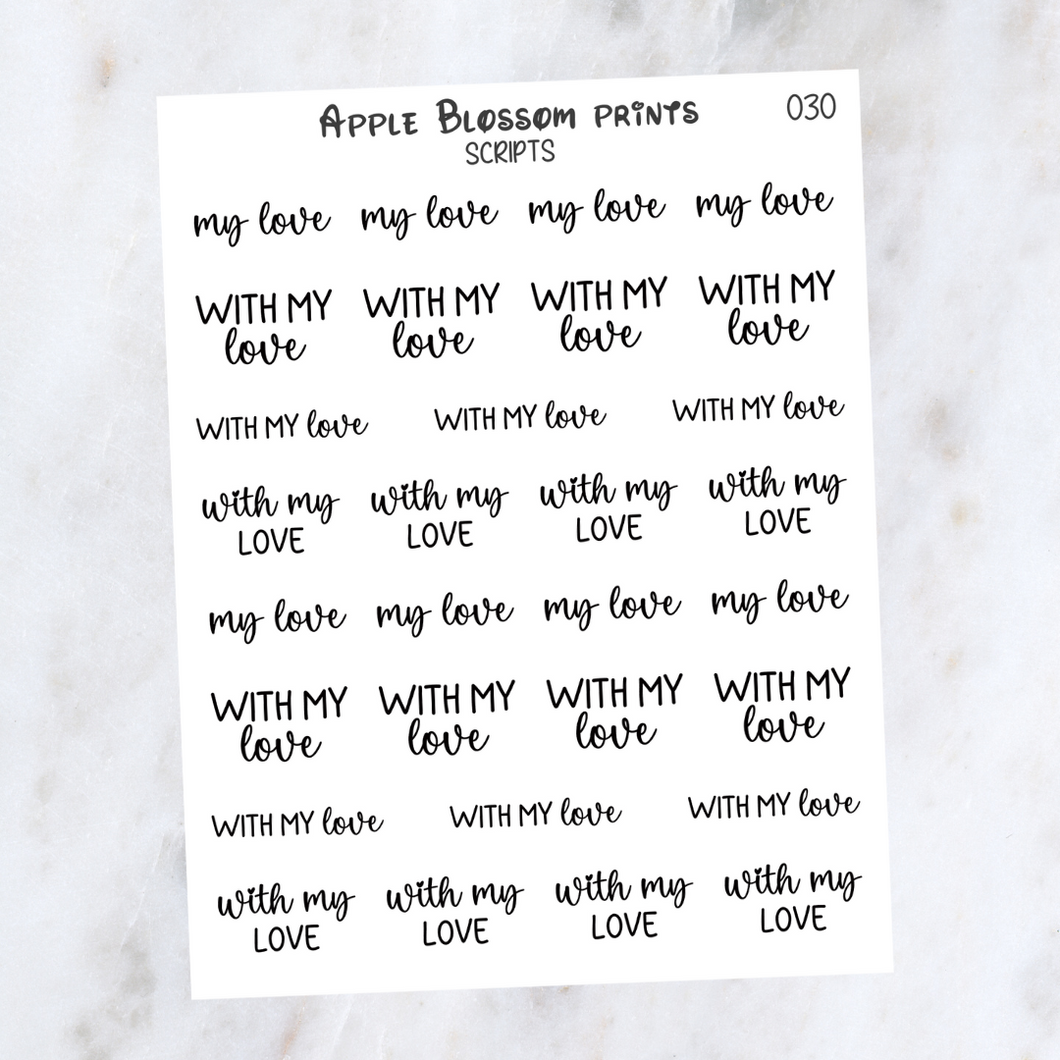 Apple Blossom prints 030
SCRIPTS
my love my love my love my love
WITH MY WITH MY WITH MY WITH MY
love love love love
WITH MY love WITH MY love WITH MY love
with my with my with my with my
LOVE LOVE LOVE LOVE
my love my love my love my love
WITH MY WITH MY WITH MY WITH MY
love love love love
WITH MY love WITH MY love WITH MY love
with my with my with my with my
LOVE LOVE LOVE LOVE